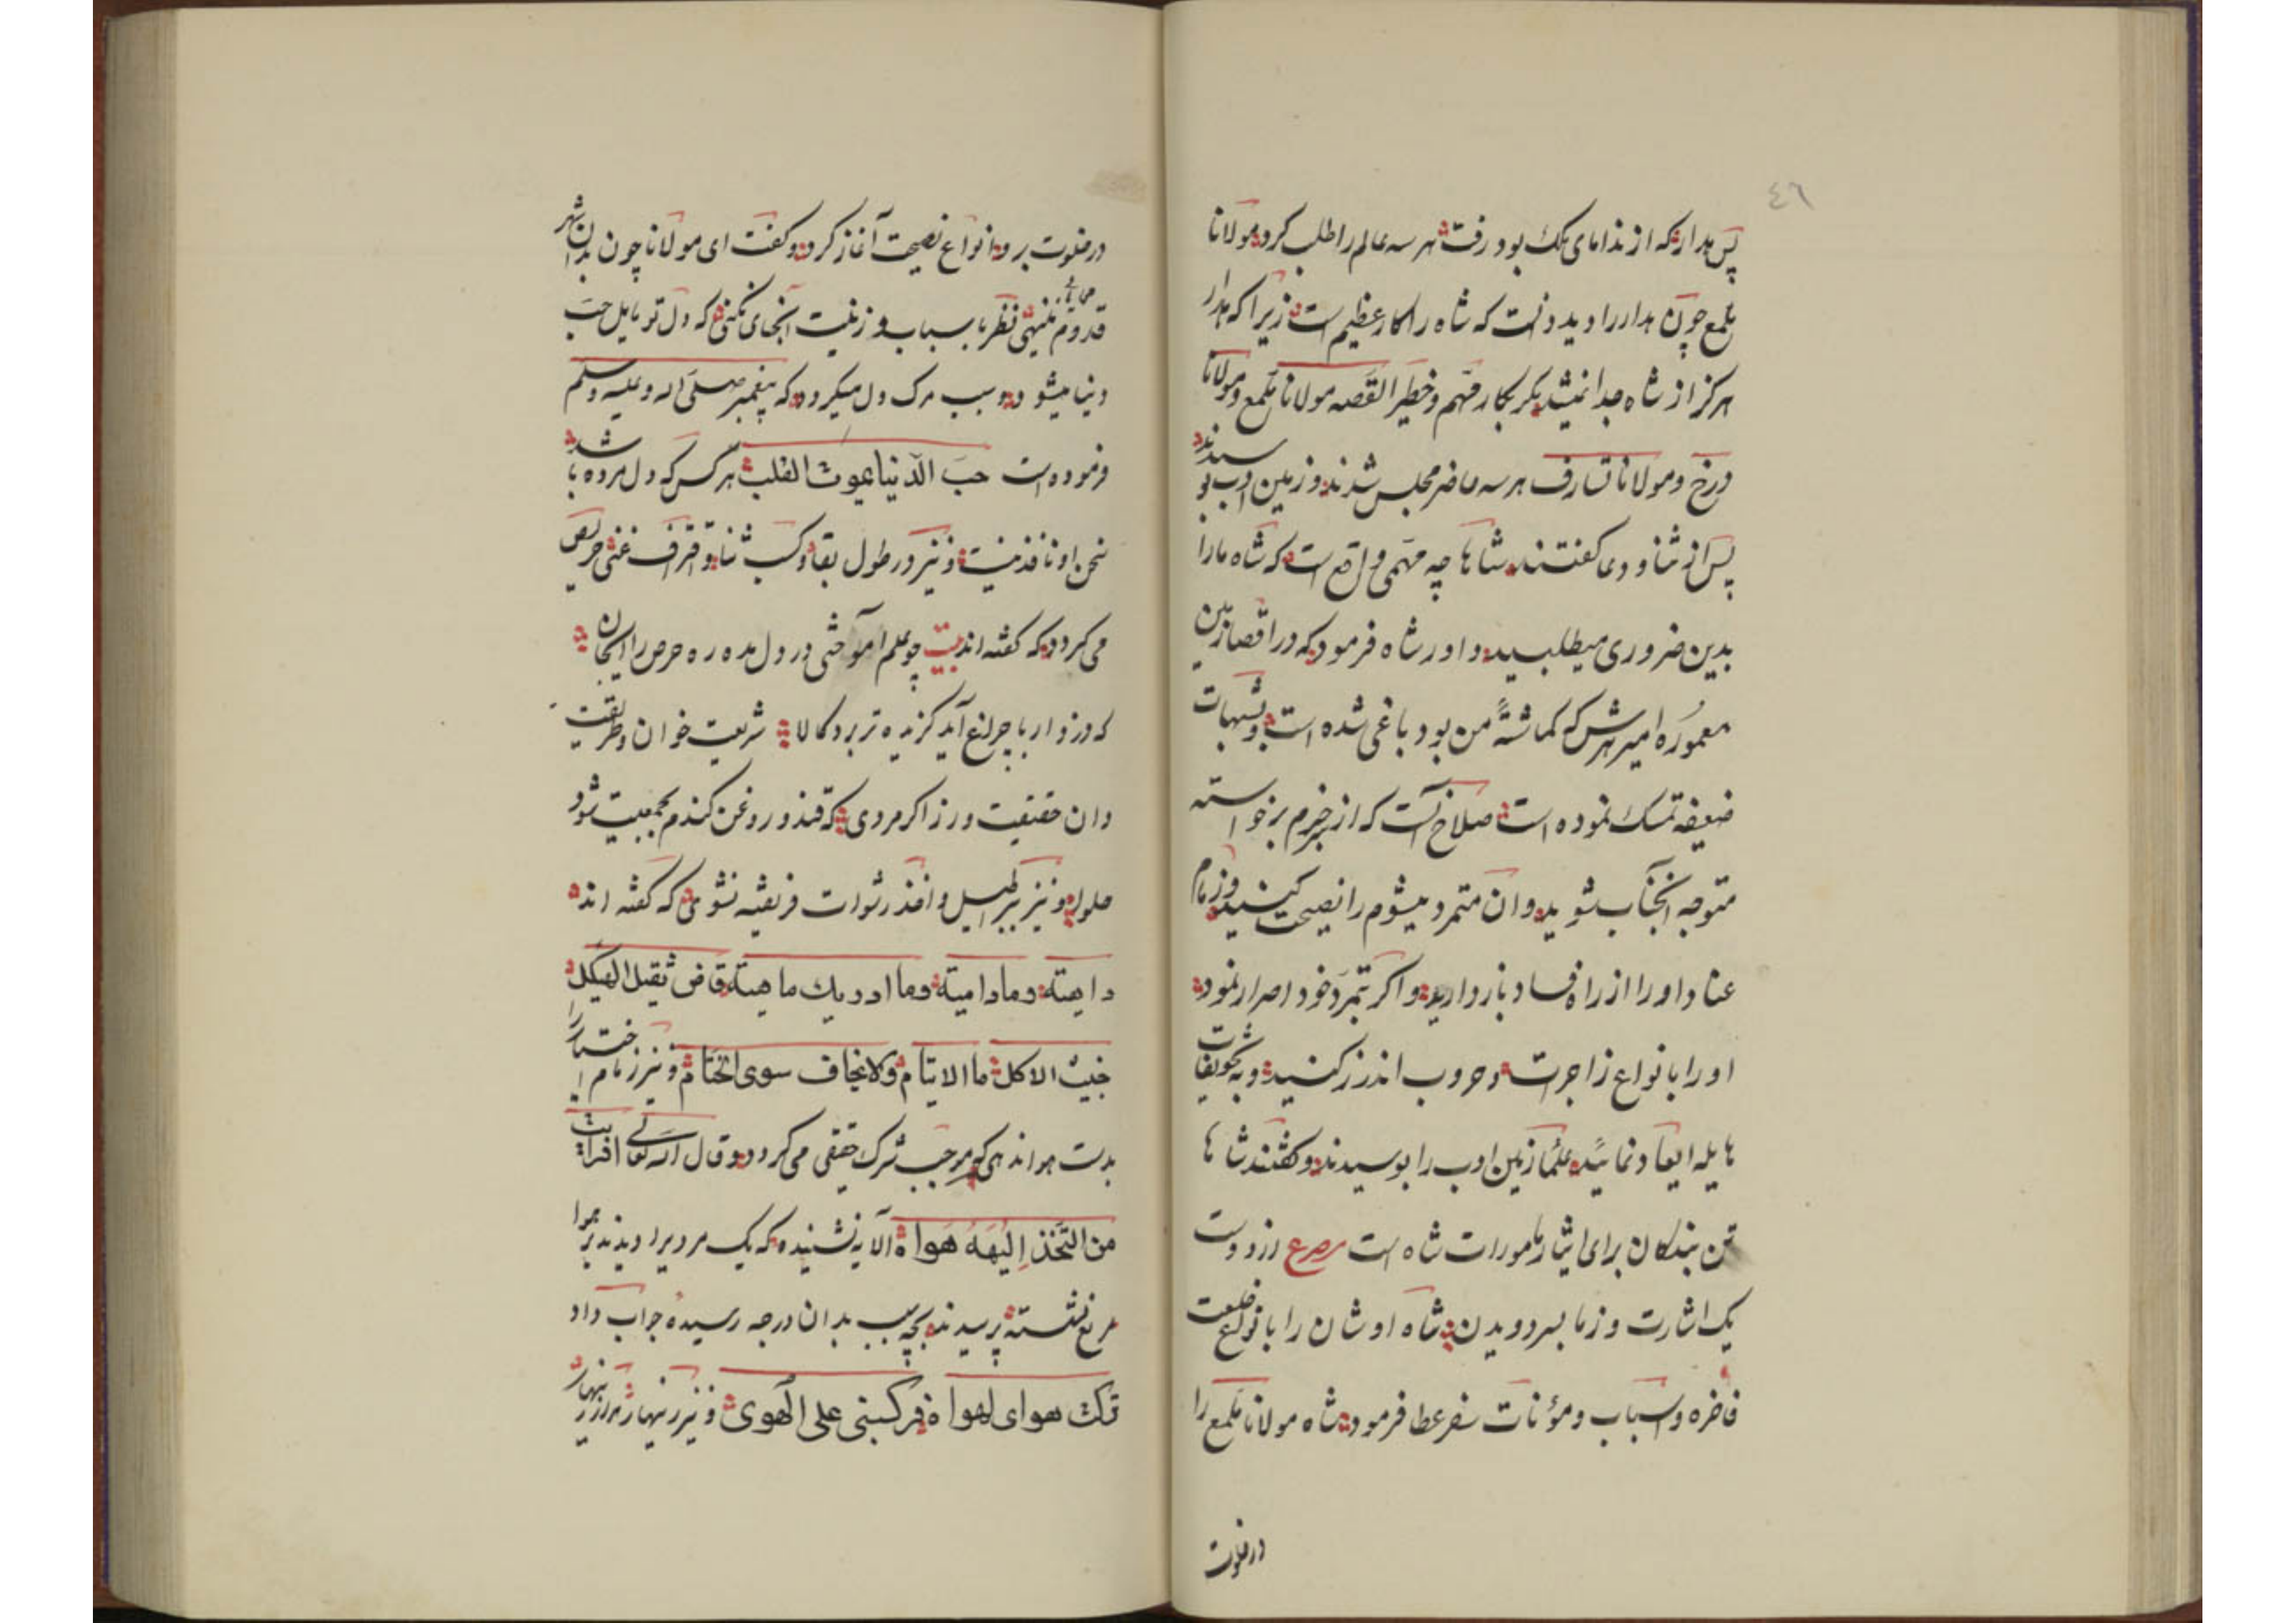 ٤٦
پس مدار که از ندامای ملک بود رفت هر سه عالم را طلب کرد مولانا
ملمع چون مدار را دید دانست که شاه را کار عظیم است زیرا که مدار
هرکز از شاه جدا نمیشد مکر بکار مهم و خطیر القصه مولانا ملمع و مولانا
و مولانا هر سه حاضر مجلس شدند و زمین ادب بوسیدند
پس از ثنا و دعا کفتند شاها چه مهمی واقع است که شاه ما را
بدین ضروری میطلبید داور شاه فرمود که در اقصا زمین
معموره امیر که کماشتهٔ من بود باغی شده است و بشبهات
ضعیفه تمسک نموده است صلاح آنست که از برخواسته
متوجه آنجناب شوید و آن متمرد میشوم را نصیحت کنید و زمام
عناد او را از راه فساد باز دارید و اکر بتمرد خود اصرار نمود
او را بانواع زاجرات و حروب اندرز کنید و به تخویفات
هایله ایعاد نمائید علما زمین ادب را بوسیدند و کفتند شاها
تن بندکان برای ایثار مامورات شاه است مصرع از دوست
یک اشارت و ز ما بسر دویدن شاه اوشان را بانواع خلعت
فاخره و اسباب و مؤنات سفر عطا فرمود شاه مولانا ملمع را
در خلوت
در خلوت برد انواع نصیحت آغاز کرد و کفت ای مولانا چون بدان شهر
قدوم نظر باسباب و زینت آنجای نکنی که دل تو مایل حب
دنیا میشود و سبب مرک دل میکردد که پیغمبر صلی الله و علیه وسلم
فرموده است حب الدنیا یموت القلب هر کس که دل مرده باشد
سخن او نافذ نیست و نیز در طول بقا و کسب ثنا و حریص
می کردد که کفته اند بیت چو علم آموختی در دل مده ره حرص را اینجان
که دزد ار با چراغ آید کزیده تر برد کالا شریعت خوان و طریقت
دان حقیقت ورز اکر مردی که قند و روغن کندم بجمعیت شود
حلوا و نیز براطیل و اخذ رشوات فریفته نشوی که کفته اند
داهیته وما دامیته وما ادریك ما هیته قاض ثقیل الهیکل
خبیث الاکل ما الایتام ولا یخاف سوی الختام و نیز زمام اختیار را
بدست هوا ندهی که موجب شرک حقیقی می کردد و قال الله تعالی افرایت
من التخذ إلیهه هواه آلا یه نشنیده که یک مردیرا دیدند بر هوا
مربع نشسته پرسیدند بچه سبب بدان درجه رسیده جواب داد
ترکت هوای لهواه فرکبنی علی الهوی و نیز